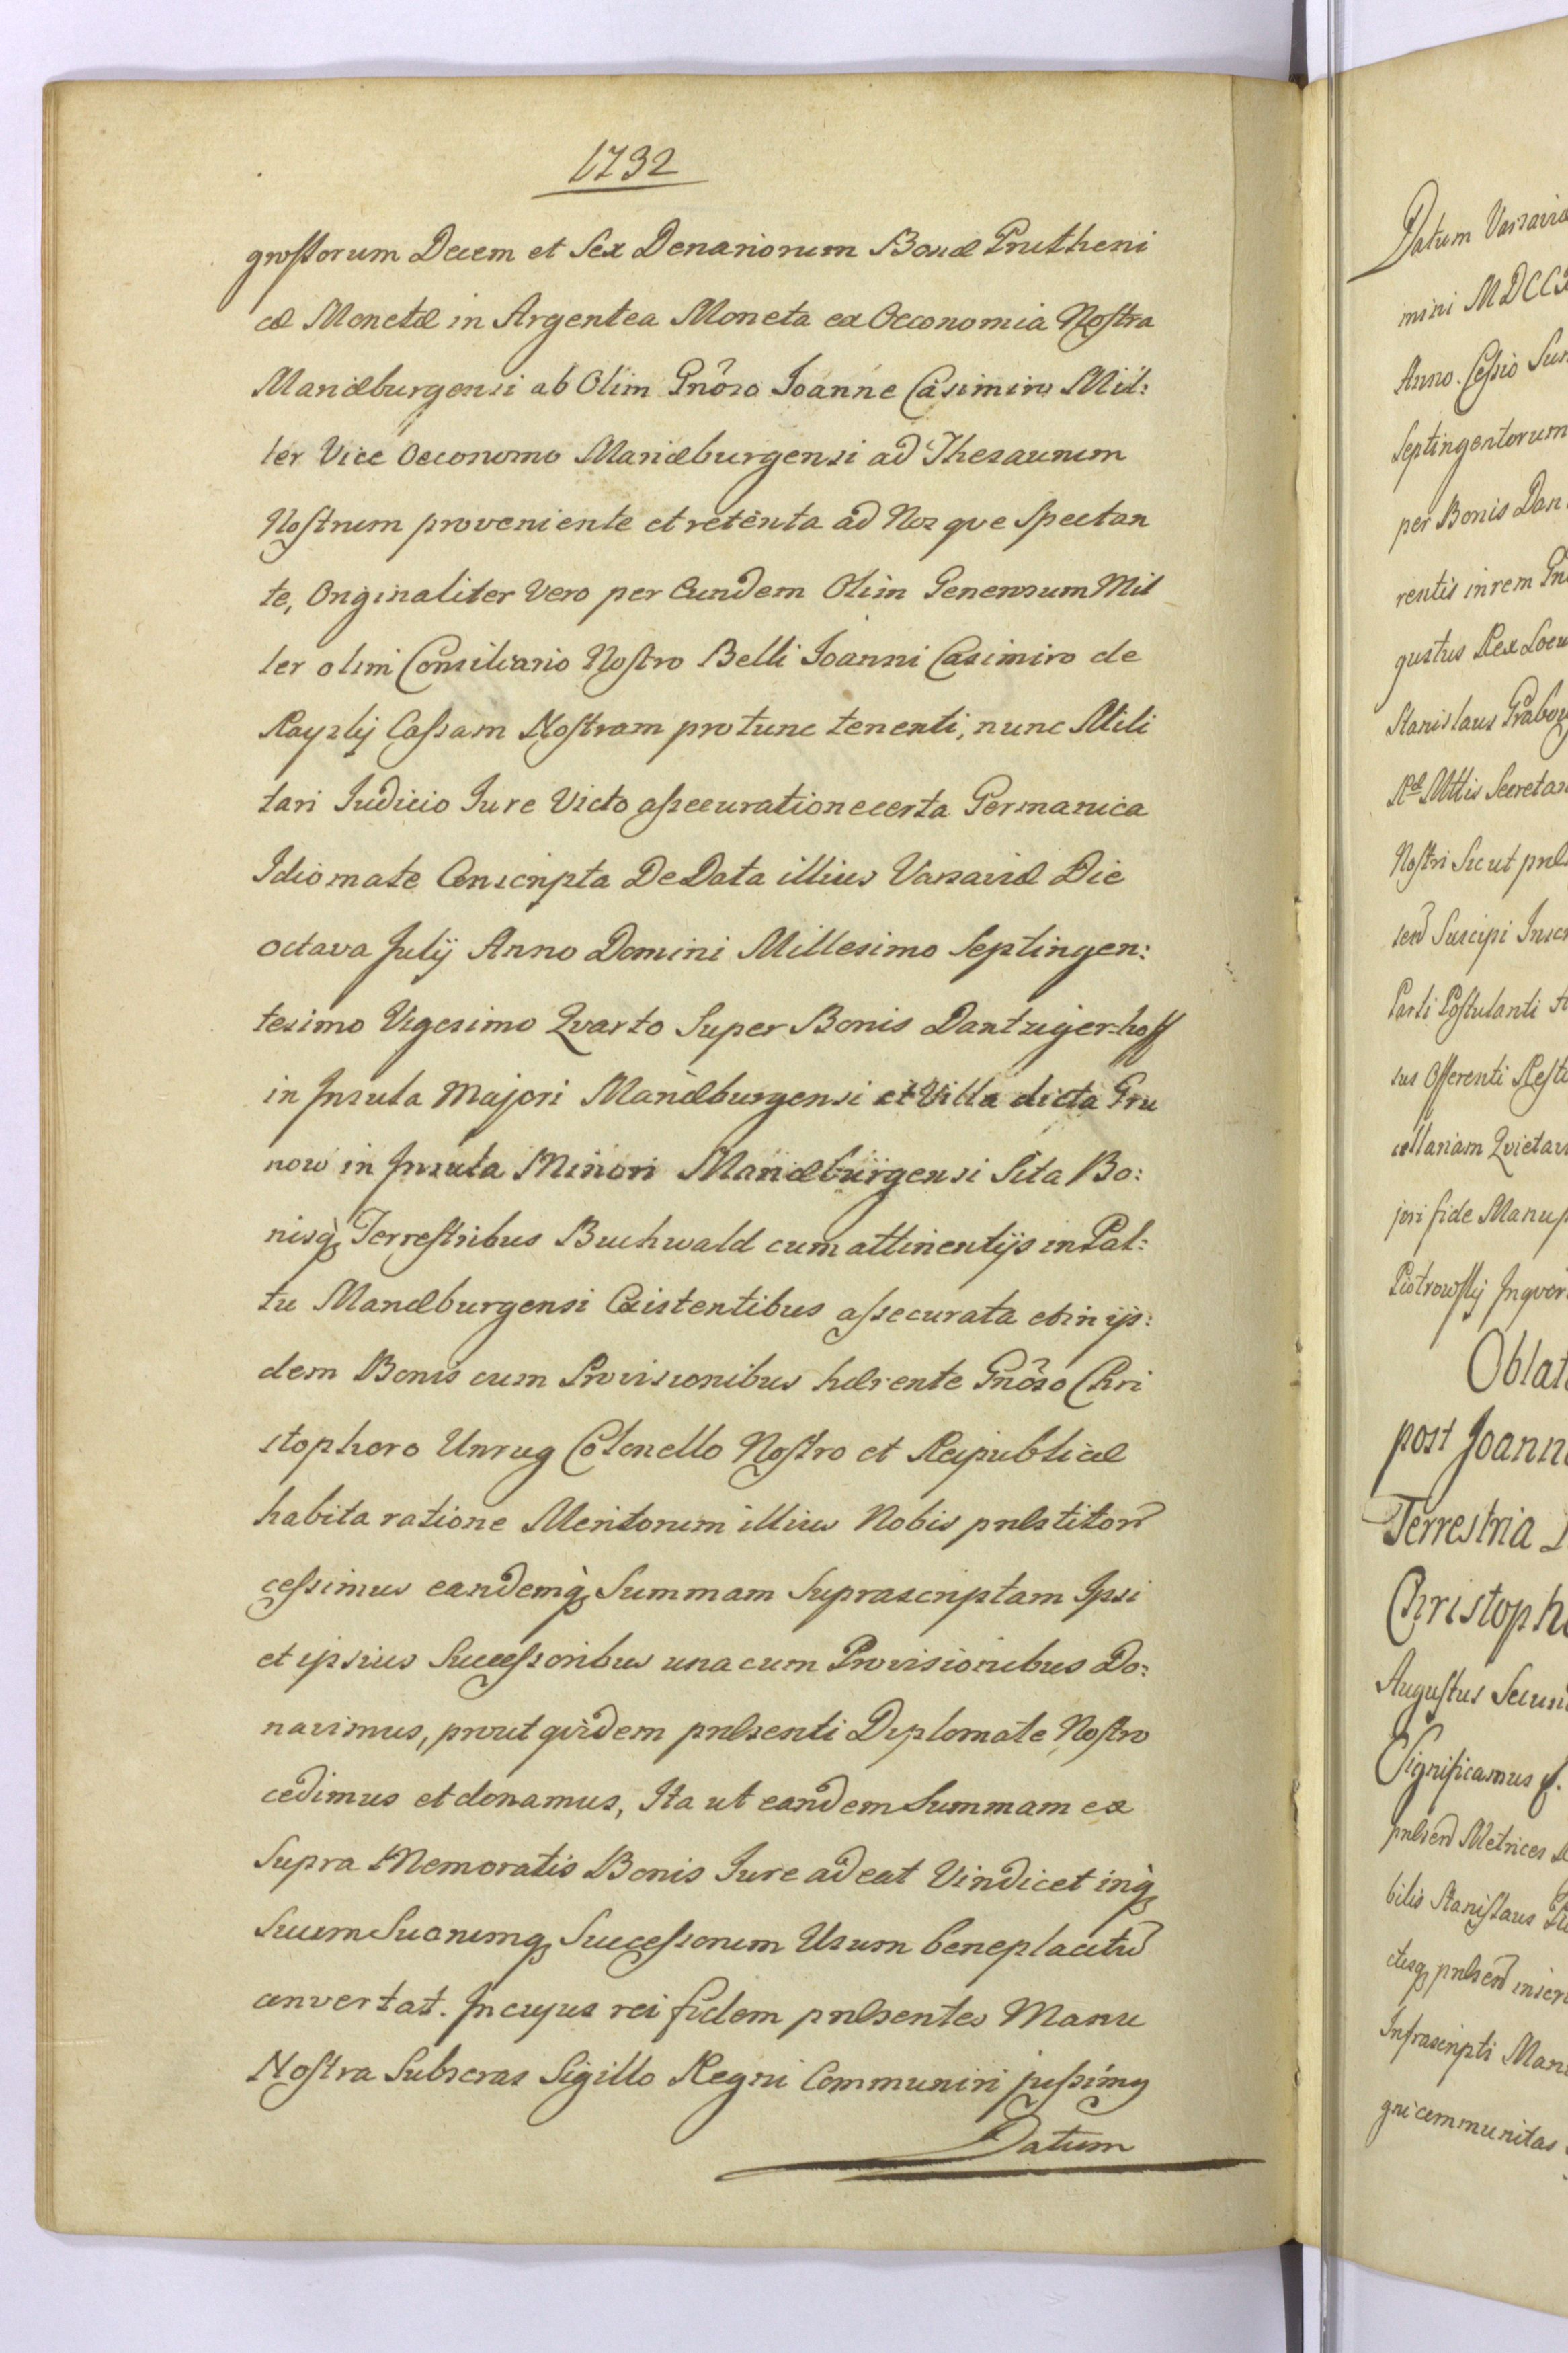 1732
grossorum Decem et Sex Denariorum Bonæ Prutheni
cæ Monetæ in Argentea Moneta ex Oeconomia Nostra
Mariæburgensi ab Olim Gnôso Ioanne Casimiro Mil:
ler Vice Oeconomo Mariæburgensi ad Thesaurum
Nostrum proveniente et retenta ad Nosque Spectan
te, Originaliter Vero per Eundem Olim Generosum Mil
ler olim Consiliario Nostro Belli Ioanni Casimiro de
Rayzky Cassam Nostram pro tunc tenenti, nunc Mili
tari Iudicio Iure Victo assecuratione certa Germanica
Idiomate Conscripta De Data illius Varsaviæ Die
octava Julÿ Anno Domini Millesimo Septingen:
tesimo Vigesimo Qvarto Super Bonis Dantziger-hoff
in Insula Majori Mariæburgensi et Villa dicta Gru
now in Insula Minori Mariæburgensi Sita Bo:
nisq; Terrestribus Buchwald cum attinentÿs in Pal:
tu Mariæburgensi Existentibus assecurata et in ijs:
dem Bonis cum Provisionibus hærente Gnôso Chri
stophoro Unrug Colonello Nostro et Reipublicæ
habita ratione Meritorum illius Nobis præstitor̃
cessimus eandemq; Summam Suprascriptam Ipsi
et ipsius Successoribus una cum Provisionibus Do:
navimus, prout qvidem præsenti Diplomate Nostro
cedimus et donamus, Ita ut eandem Summam ex
Supra Memoratis Bonis Iure adeat Vindicet inq;
Suum Suorumq; Successorum Usum beneplacitũ
convertat. In cujus rei fidem præsentes Manu
Nostra Subscras Sigillo Regni Communiri jussimg
Datum
Datum Varsaviæ
mini MDCC
Anno. Cessio Sum
Septingentorum
per Bonis Dan
rentis in rem Gn
gustus Rex Locu
Stanislaus Grabow
Ræ Mttis Secretar
Nostri Sicut præ
sen̄ Suscipi Inscr
Parti Postulanti
sus Offerenti Resti
cellariam Qvietav
jori fide Manup
Piotrowskj Inqver
Oblat
post Joann
Terrestria
Christoph
Augustus Secun
Significamus
præsen̄ Metrices
bilis Stanislaus
ctusq; præsen̄ inscr
Infrascripti Man
gni communitas